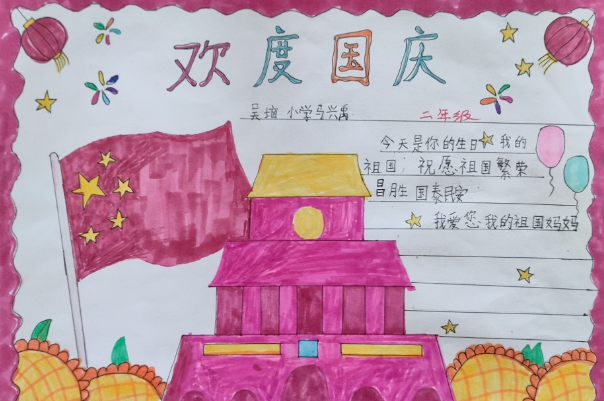 欢度国庆
吴垭小学马兴禹 二年级
今天是你的生日 我的
祖国；祝愿祖国繁荣
昌胜 国泰民安
我爱您 我的祖国妈妈